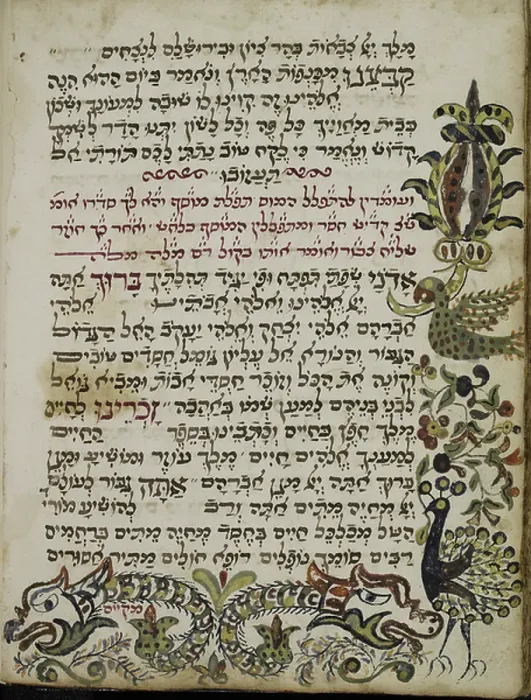 מלך יי צבאות בהר ציון ובירושלם לנצחים
קבצנו מכנפות הארץ ונאמר ביום ההוא הנה
אלהינו זה קוינו לו שובה למעונך ושכון
בבית מאוויך כל פה וכל לשון יתנו הדר לשמך
קדוש ונאמר כי לקח טוב נתתי לכם תורתי אל
תעזובו
ועומדין להתפלל המוסף תפלת מוסף
ש"צ קדיש ומתפללין המוסף בלחש ואחר כך חוזר
שליח צבור ואומר אותו בקול רם מלה במלה
אדני שפתי תפתח ופי יגיד תהלתיך ברוך אתה
יי אלהינו ואלהי אבותינו אלהי
אברהם אלהי יצחק ואלהי יעקב האל הגדול
הגבור והנורא אל עליון גומל חסדים טובים
וקונה את הכל וזוכר חסדי אבות ומביא גואל
לבני בניהם למען שמו באהבה זכרינו לחיים
מלך חפץ בחיים וכתבינו בספר החיים
למענך אלהים חיים מלך עוזר ומושיע ומגן
ברוך אתה יי מגן אברהם אתה גבור לעולם
יי מחיה מתים אתה ורב להושיע מוריד
הטל מכלכל חיים בחסד מחיה מתים ברחמים
רבים סומך נופלים רופא חולים מתיר אסורים
מקיים